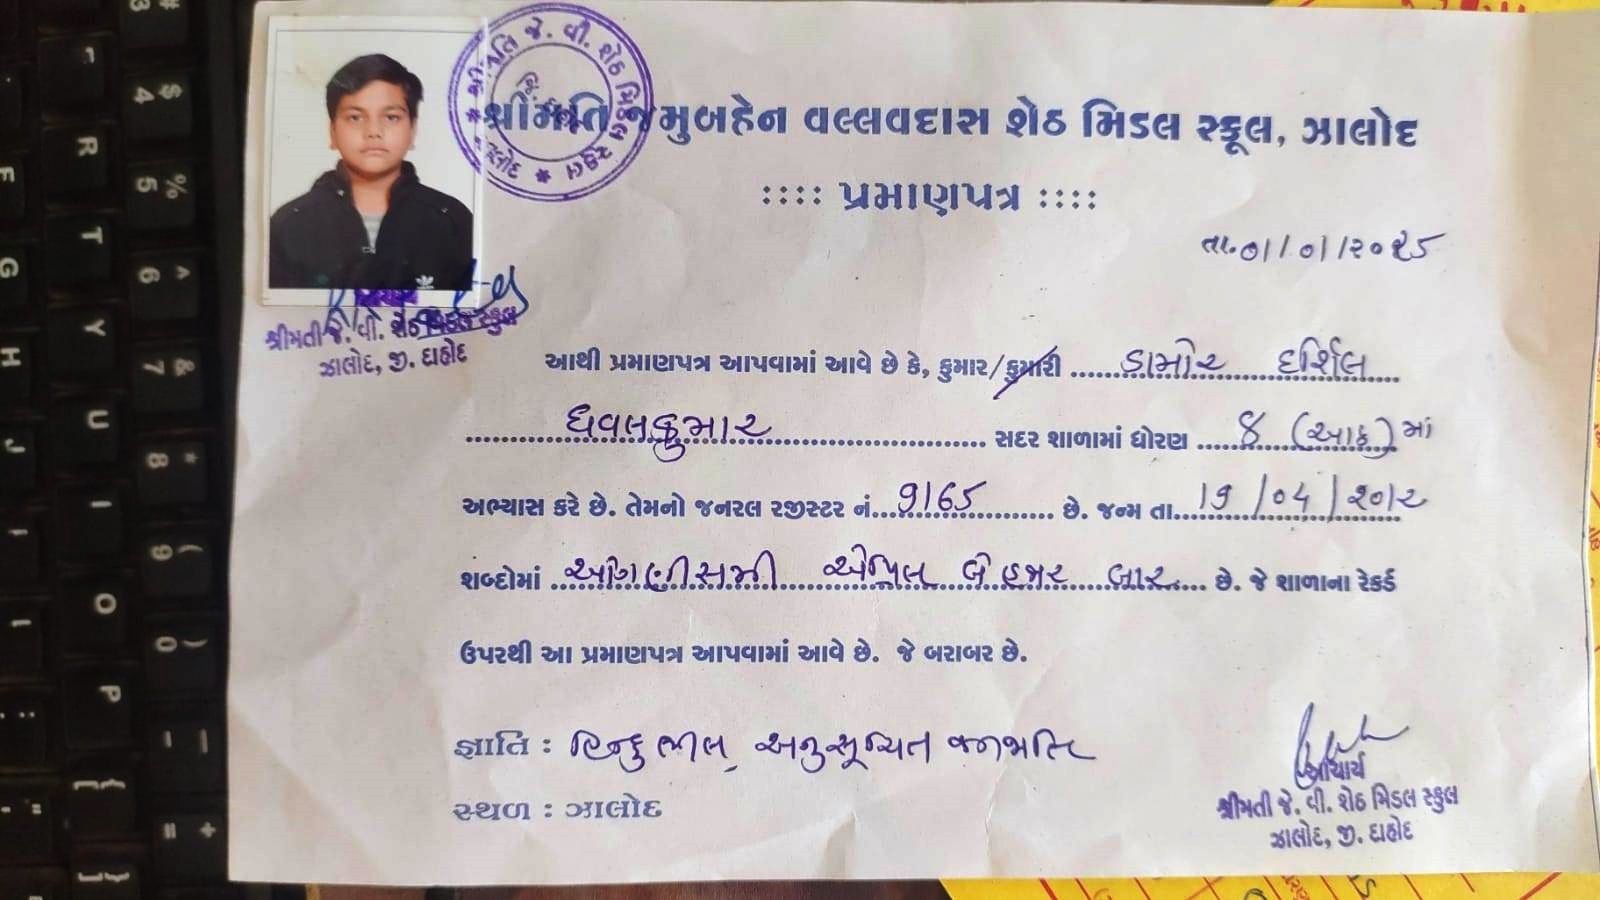 શ્રીમતિ જે. વી. શેઠ મિડલ સ્કુલ
* ઝાલોદ *
શ્રીમતિ જમુબહેન વલ્લવદાસ શેઠ મિડલ સ્કૂલ, ઝાલોદ
:::: પ્રમાણપત્ર ::::
તા.01/01/૨૦૨5
શ્રીમતી જે. વી. શેઠ મિડલ સ્કુલ
ઝાલોદ, જી. દાહોદ
આથી પ્રમાણપત્ર આપવામાં આવે છે કે, કુમાર/કુમારી ...... ડામોર દર્શિલ
ધવલકુમાર ...... સદર શાળામાં ધોરણ ...... ૪ (આઠ) માં
અભ્યાસ કરે છે. તેમનો જનરલ રજીસ્ટર નં. 9165 ...... છે. જન્મ તા. 19/04/૨૦૧૨
શબ્દોમાં ઓગણીસમી એપ્રિલ બે હજાર બાર ... છે. જે શાળાના રેકર્ડ
ઉપરથી આ પ્રમાણપત્ર આપવામાં આવે છે. જે બરાબર છે.
જ્ઞાતિ : હિન્દુ ભીલ, અનુસૂચિત જનજાતિ
સ્થળ : ઝાલોદ
આચાર્ય
શ્રીમતી જે. વી. શેઠ મિડલ સ્કુલ
ઝાલોદ, જી. દાહોદ
# $ % ^ & * ( )
3 4 5 6 7 8 9 0
R T Y U I O P
F G H J L